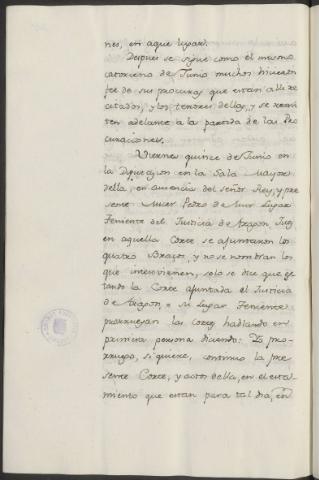 nes, en aquel lugar.
Despues se sigue como el mismo
catorceno de Junio muchos hicieron
fee de sus procuras que estan alli re
citados, y los tenores dellas, y se remi
ten adelante a la partida de las Pro
curaciones.
Viernes quince de Junio en
la Diputacion en la Sala Mayor
della, en ausencia del señor Rey, y pre
sente Micer Pedro de Mur Lugar
Teniente del Justicia de Aragon Juez
en aquella Corte se ajuntaron los
quatro Brazos, y no se nombran los
que intervienen, solo se dice que es
tando la Corte ajuntada el Justicia
de Aragon, o su Lugar Teniente
prorruegan las cortes hablando en
primera persona diciendo: Yo pro-
rruego, si quiere, continuo la pre
sente Corte, y actos della, en el esta-
miento que estan para tal dia, en